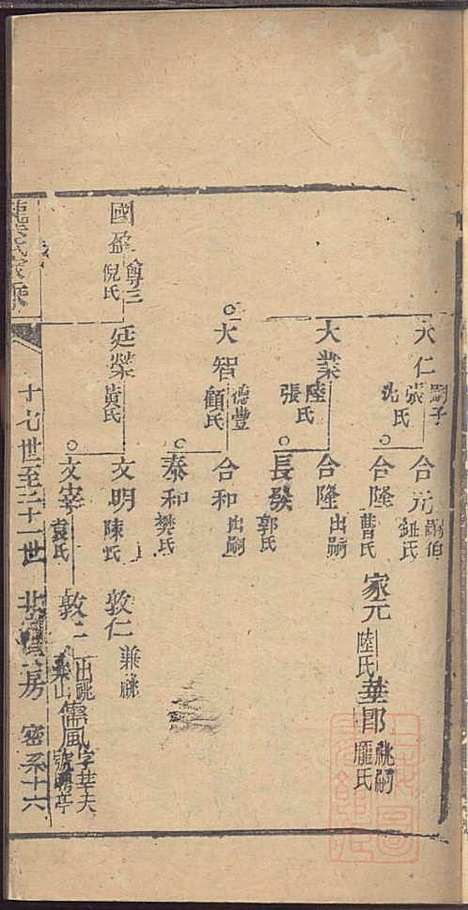 大仁 嗣子 張 沈氏
合元 嗣伯 鈕氏
合隆 曹氏
家元 陸氏
華郎 祧嗣 龐氏
大業 陸 張氏
合隆 出嗣
長發 郭氏
大智 德豐 顧氏
合和 出嗣
泰和 樊氏
國盈 尊三 倪氏
廷榮 黃氏
文明 陳氏
敦仁 兼祧
文宰 袁氏
敦仁 出祧
儒風 字華夫
十七世至二十一世
房
密系十六